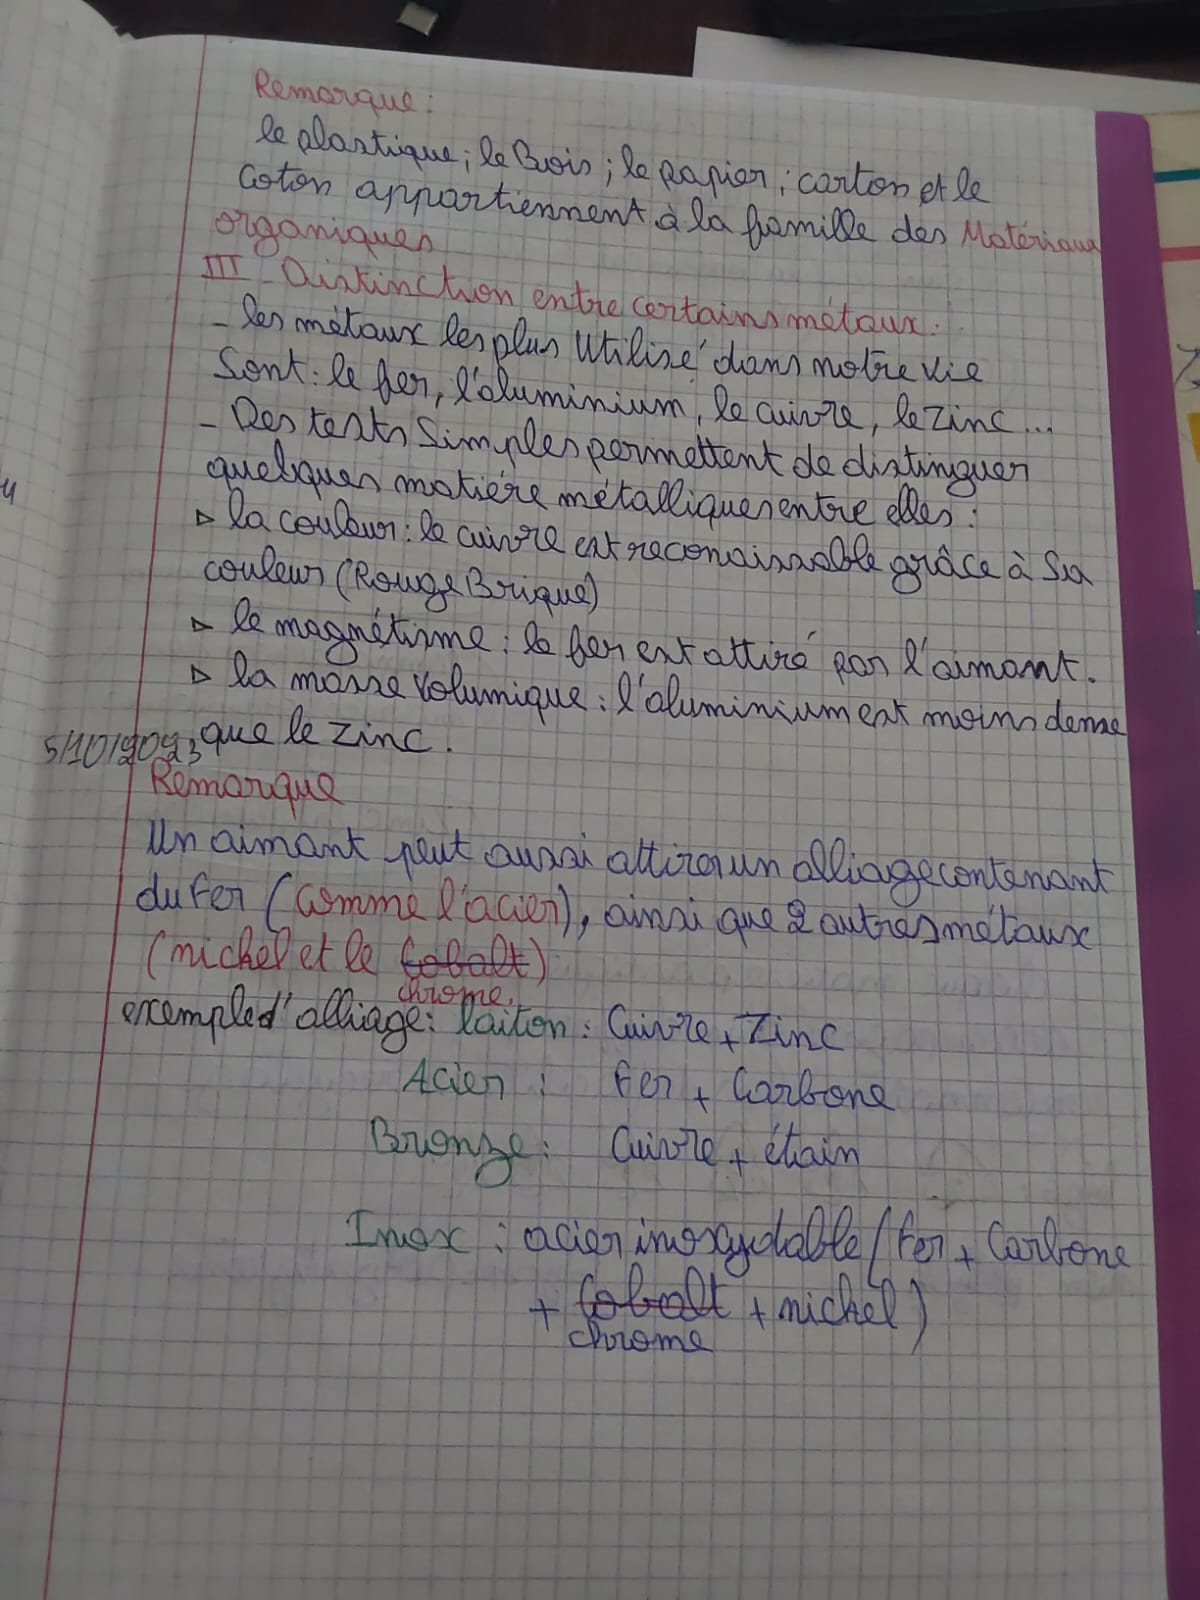 Remarque :
le plastique ; le Bois ; le papier ; carton et le
coton appartiennent à la famille des Matériaux
organiques
III - Distinction entre certains métaux :
- les métaux les plus Utilisé dans notre vie
Sont : le fer, l'aluminium, le cuivre, le zinc...
- Des tests Simples permettent de distinguer
quelques matière métalliques entre elles :
▷ la couleur : le cuivre est reconaissable grâce à Sa
couleur (Rouge Brique)
▷ le magnétisme : le fer est attiré par l'aimant.
▷ la masse volumique : l'aluminium est moins dense
que le zinc.
5/10/2023
Remarque
Un aimant peut aussi attirer un alliage contenant
du Fer (comme l'acier), ainsi que 2 autres métaux
(nichel et le cobalt)
chrome.
exemple d'alliage : laiton : Cuivre + Zinc
Acier : Fer + Carbone
Bronze : Cuivre + étain
Inox : acier inoxydable (Fer + Carbone
+ Cobalt + nichel)
chrome